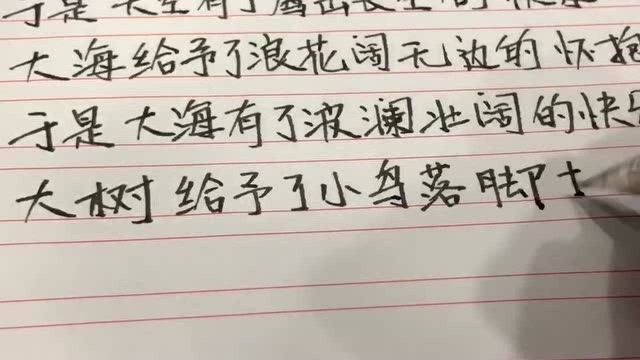 于是天空有了
大海给予了浪花阔无边的怀抱
于是大海有了波澜壮阔的快
大树给予了小鸟落脚